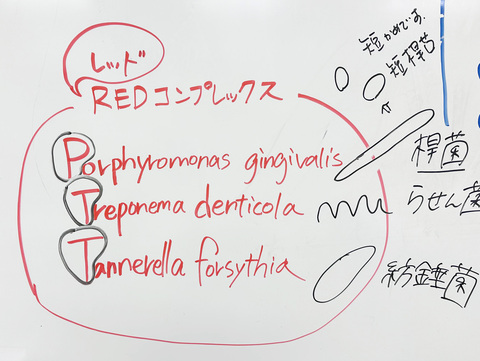 レッド
REDコンプレックス
短かめです。
短桿菌
Porphyromonas gingivalis
桿菌
Treponema denticola
らせん菌
Tannerella forsythia
紡錘菌